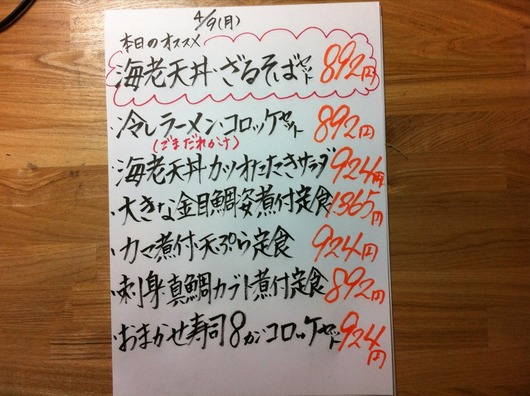 4/9(月)
本日のオススメ
海老天丼・ざるそばセット 892円
・冷しラーメン・コロッケセット 892円
(ごまだれかけ)
・海老天丼カツオたたきサラダ 924円
・大きな金目鯛姿煮付定食 1365円
・カマ煮付・天ぷら定食 924円
・刺身・真鯛カブト煮付定食 892円
・おまかせ寿司8カンコロッケセット 924円